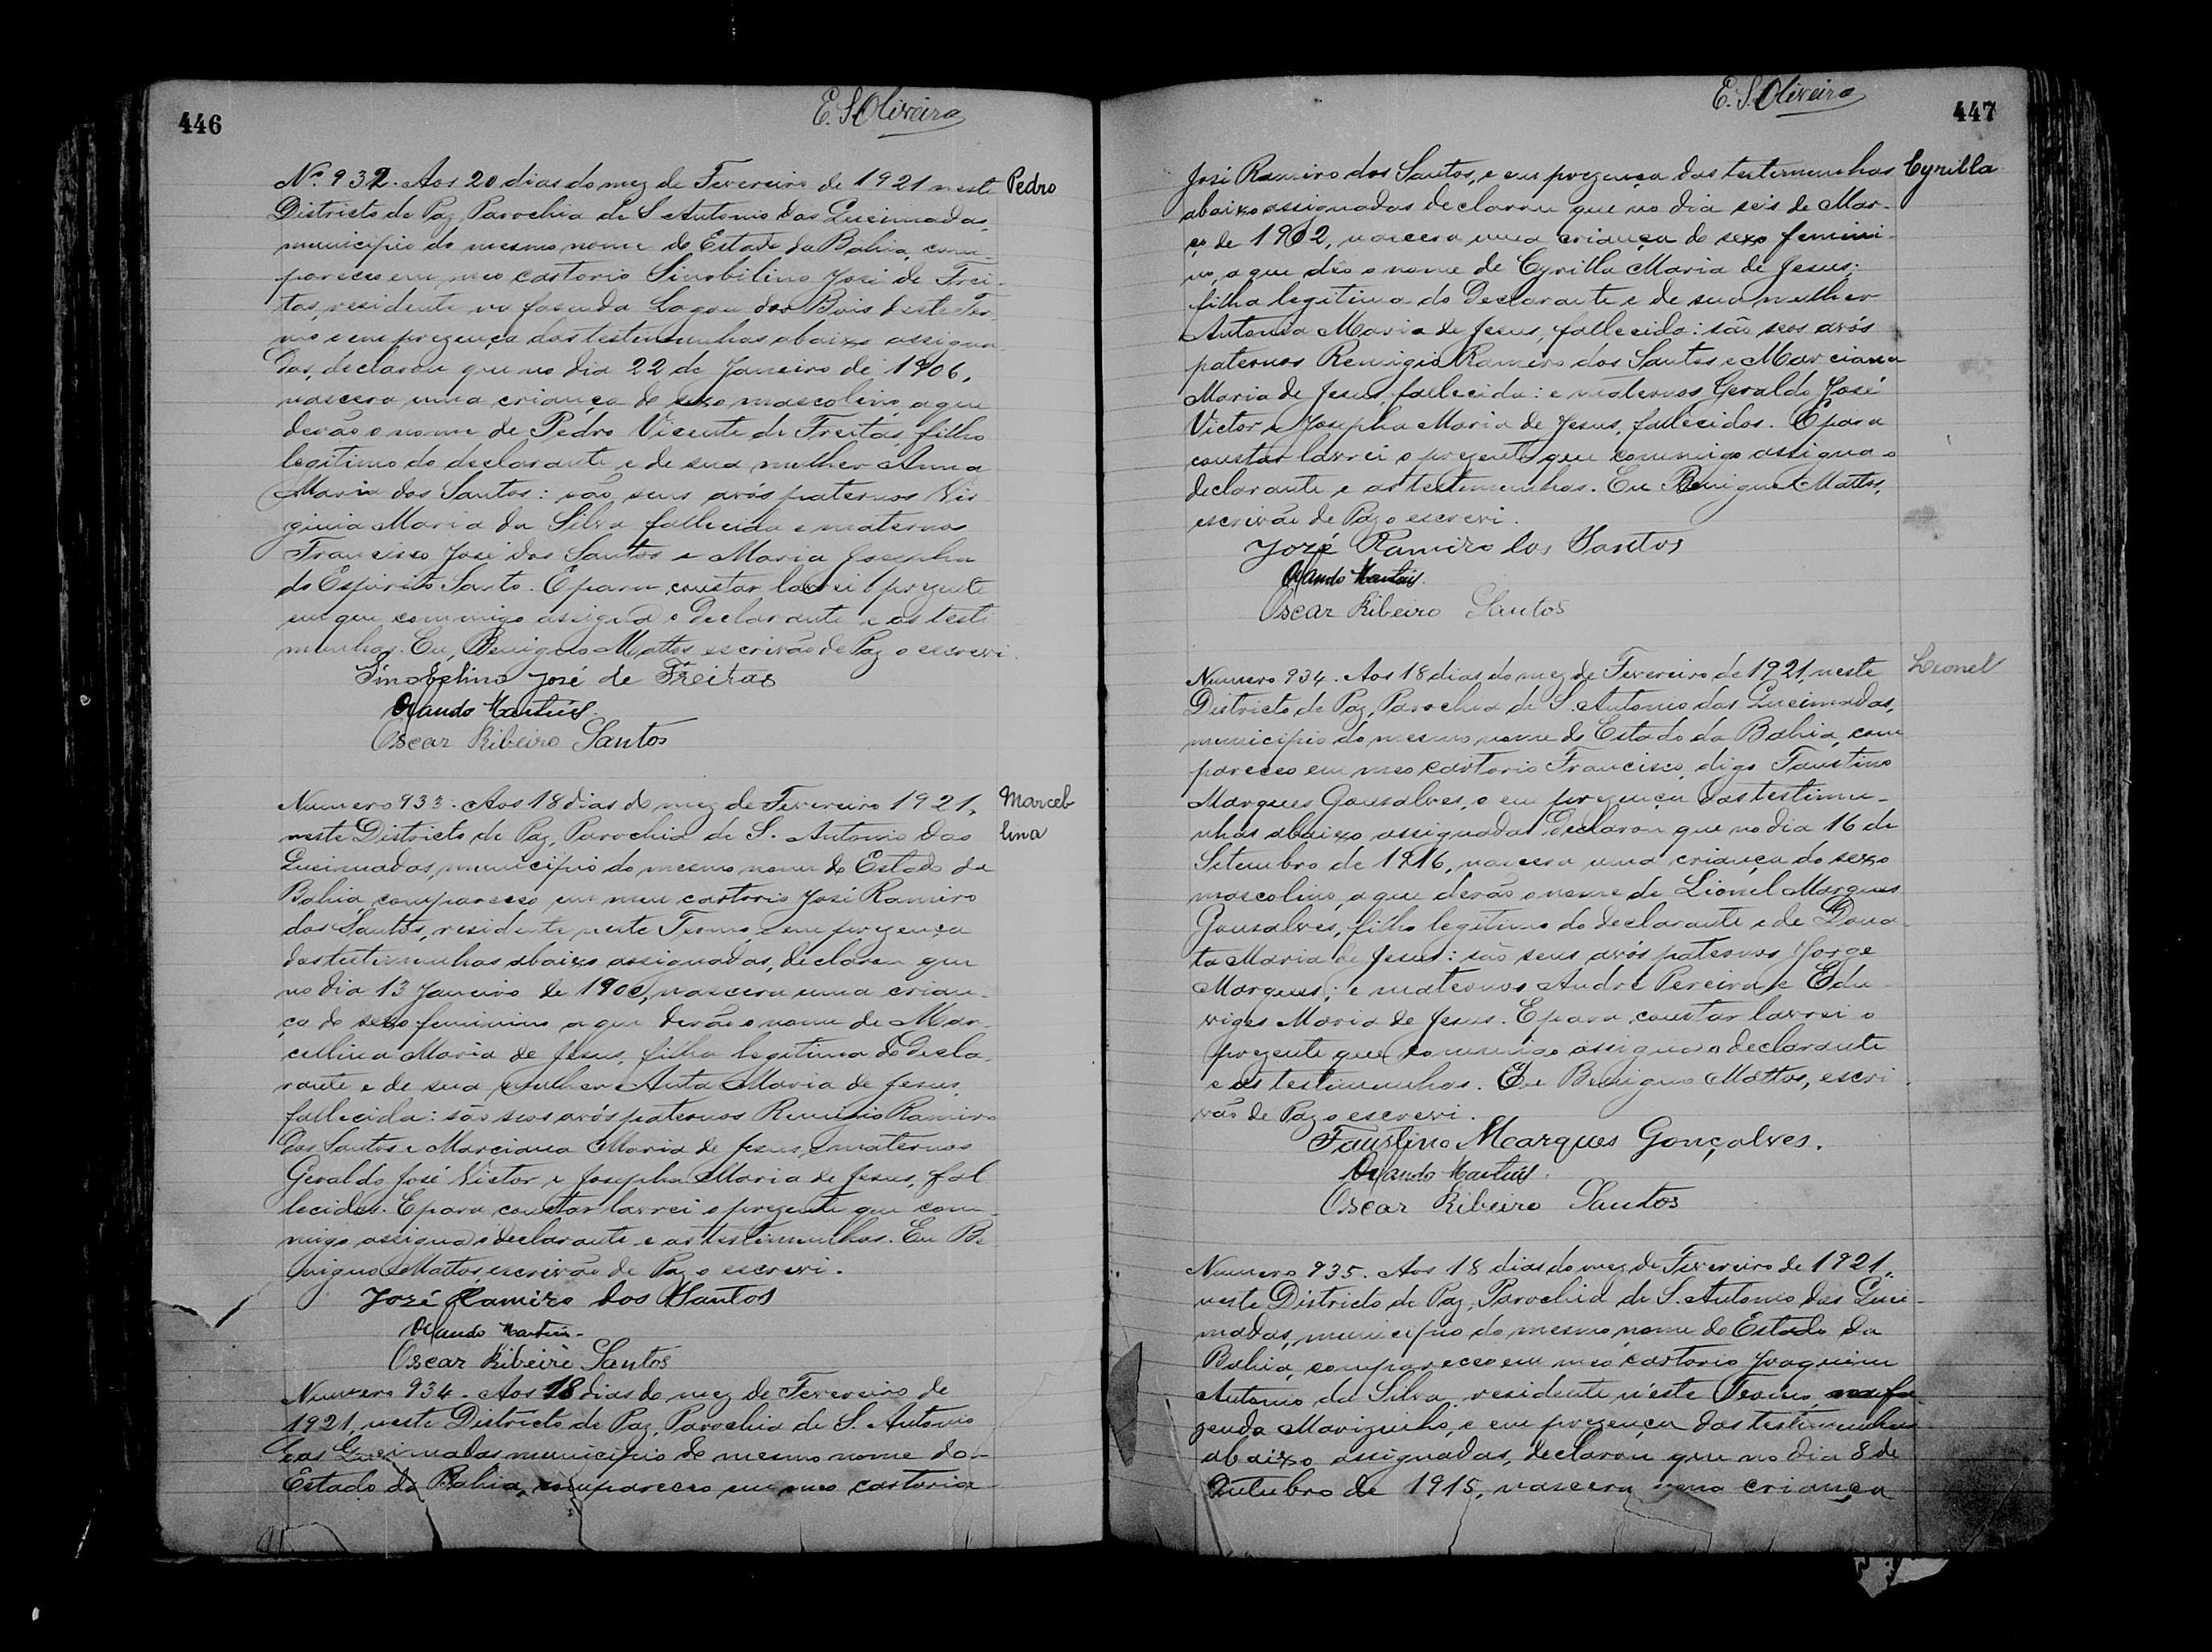 446
E. S. Oliveira
Nº. 932. Aos 20 dias do mez de Fevereiro de 1921 neste
Pedro
Districto de Paz, Parochia de S. Antonio das Queimadas,
municipio do mesmo nome do Estado da Bahia, com-
pareceo em meo cartorio Sinobilino José de Frei-
tas, residente na fasenda Lagoa dos Bois deste Ter-
mo e em prezença das testemunhas abaixo assigna
das, declarou que no dia 22 de Janeiro de 1906,
nascera uma criança do sexo mascolino, a que
derão o nome de Pedro Vicente de Freitas, filho
legitimo do declarante e de sua mulher Anna
Maria dos Santos: são seus avós paternos Vir
ginia Maria da Silva fallecida e maternos
Francisco José dos Santos e Maria Josepha
do Espirito Santo. E para constar lavrei o prezente
em que commigo assigna o Declarante e as teste
munhas. Eu, Benigno Mattos escrivão de Paz o escrevi.
Sinobelino José de Freitas
Martins
Oscar Ribeiro Santos
Numero 933. Aos 18 dias do mez de Fevereiro 1921,
Marcel-
lina
neste Districto de Paz, Parochia de S. Antonio das
Queimadas, municipio do mesmo nome do Estado da
Bahia, compareceo em meu cartorio José Ramiro
dos Santos, residente neste Termo, e em prezença
das testemunhas abaixo assignadas, declarou que
no dia 13 Janeiro de 1900, nascera uma crian-
ça do sexo feminino a que derão o nome de Mar-
cellina Maria de Jesus, filha legitima do Decla-
rante e de sua mulher Anta Maria de Jesus,
fallecida: são seos avós paternos Remigio Ramiro
dos Santos e Marciana Maria de Jesus, e maternos
Geraldo José Victor e Josepha Maria de Jesus, fal
lecidos. E para constar lavrei o prezente que com-
migo assigna o declarante e as testemunhas. Eu Be
nigno Mattos, escrivão de Paz o escrevi.
José Ramiro dos Santos
Martins
Oscar Ribeiro Santos
Numero 934. Aos 18 dias do mez de Fevereiro de
1921, neste Districto de Paz, Parochia de S. Antonio
das Queimadas municipio do mesmo nome do
Estado da Bahia, compareceo em meo cartorio
E. S. Oliveira
447
José Ramiro dos Santos, e em prezença das testemunhas
Cyrilla
abaixo assignadas declarou que no dia seis de Mar-
ço de 1902, nascera uma criança do sexo femini-
no, a que deo o nome de Cyrilla Maria de Jesus:
filha legitima do Declarante e de sua mulher
Antonia Maria de Jesus, fallecida: são seos avós
paternos Remigio Ramiro dos Santos e Marciana
Maria de Jesus, fallecida: e maternos Geraldo José
Victor e Josepha Maria de Jesus, fallecidos. E para
constar lavrei o prezente que commigo assigna o
declarante e as testemunhas. Eu Benigno Mattos,
escrivão de Paz o escrevi.
José Ramiro dos Santos
Martins
Oscar Ribeiro Santos
Numero 934. Aos 18 dias do mez de Fevereiro de 1921, neste
Lionel
Districto de Paz, Parochia de S. Antonio das Queimadas,
municipio do mesmo nome do Estado da Bahia, com
pareceo em meo cartorio Francisco, digo Faustino
Marques Gonsalves, e em prezença das testemu-
nhas abaixo assignadas Declarou que no dia 16 de
Setembro de 1916, nascera uma criança do sexo
mascolino, a que derão o nome de Lionel Marques
Gonsalves, filho legitimo do declarante e de Dona-
ta Maria de Jesus: são seus avós paternos Jorge
Marques; e maternos André Pereira e Edu-
viges Maria de Jesus. E para constar lavrei o
prezente que commigo assigna o declarante
e as testemunhas. Eu Benigno Mattos, escri-
vão de Paz o escrevi.
Faustino Marques Gonçalves.
Martins
Oscar Ribeiro Santos
Numero 935. Aos 18 dias do mez de Fevereiro de 1921,
neste Districto de Paz, Parochia de S. Antonio das Quei-
madas, municipio do mesmo nome do Estado da
Bahia, compareceo em meo cartorio Joaquim
Antonio da Silva, residente n'este Termo, na fa-
zenda Marizinho, e em prezença das testemunhas
abaixo assignadas, declarou que no dia 8 de
Outubro de 1915, nascera uma criança